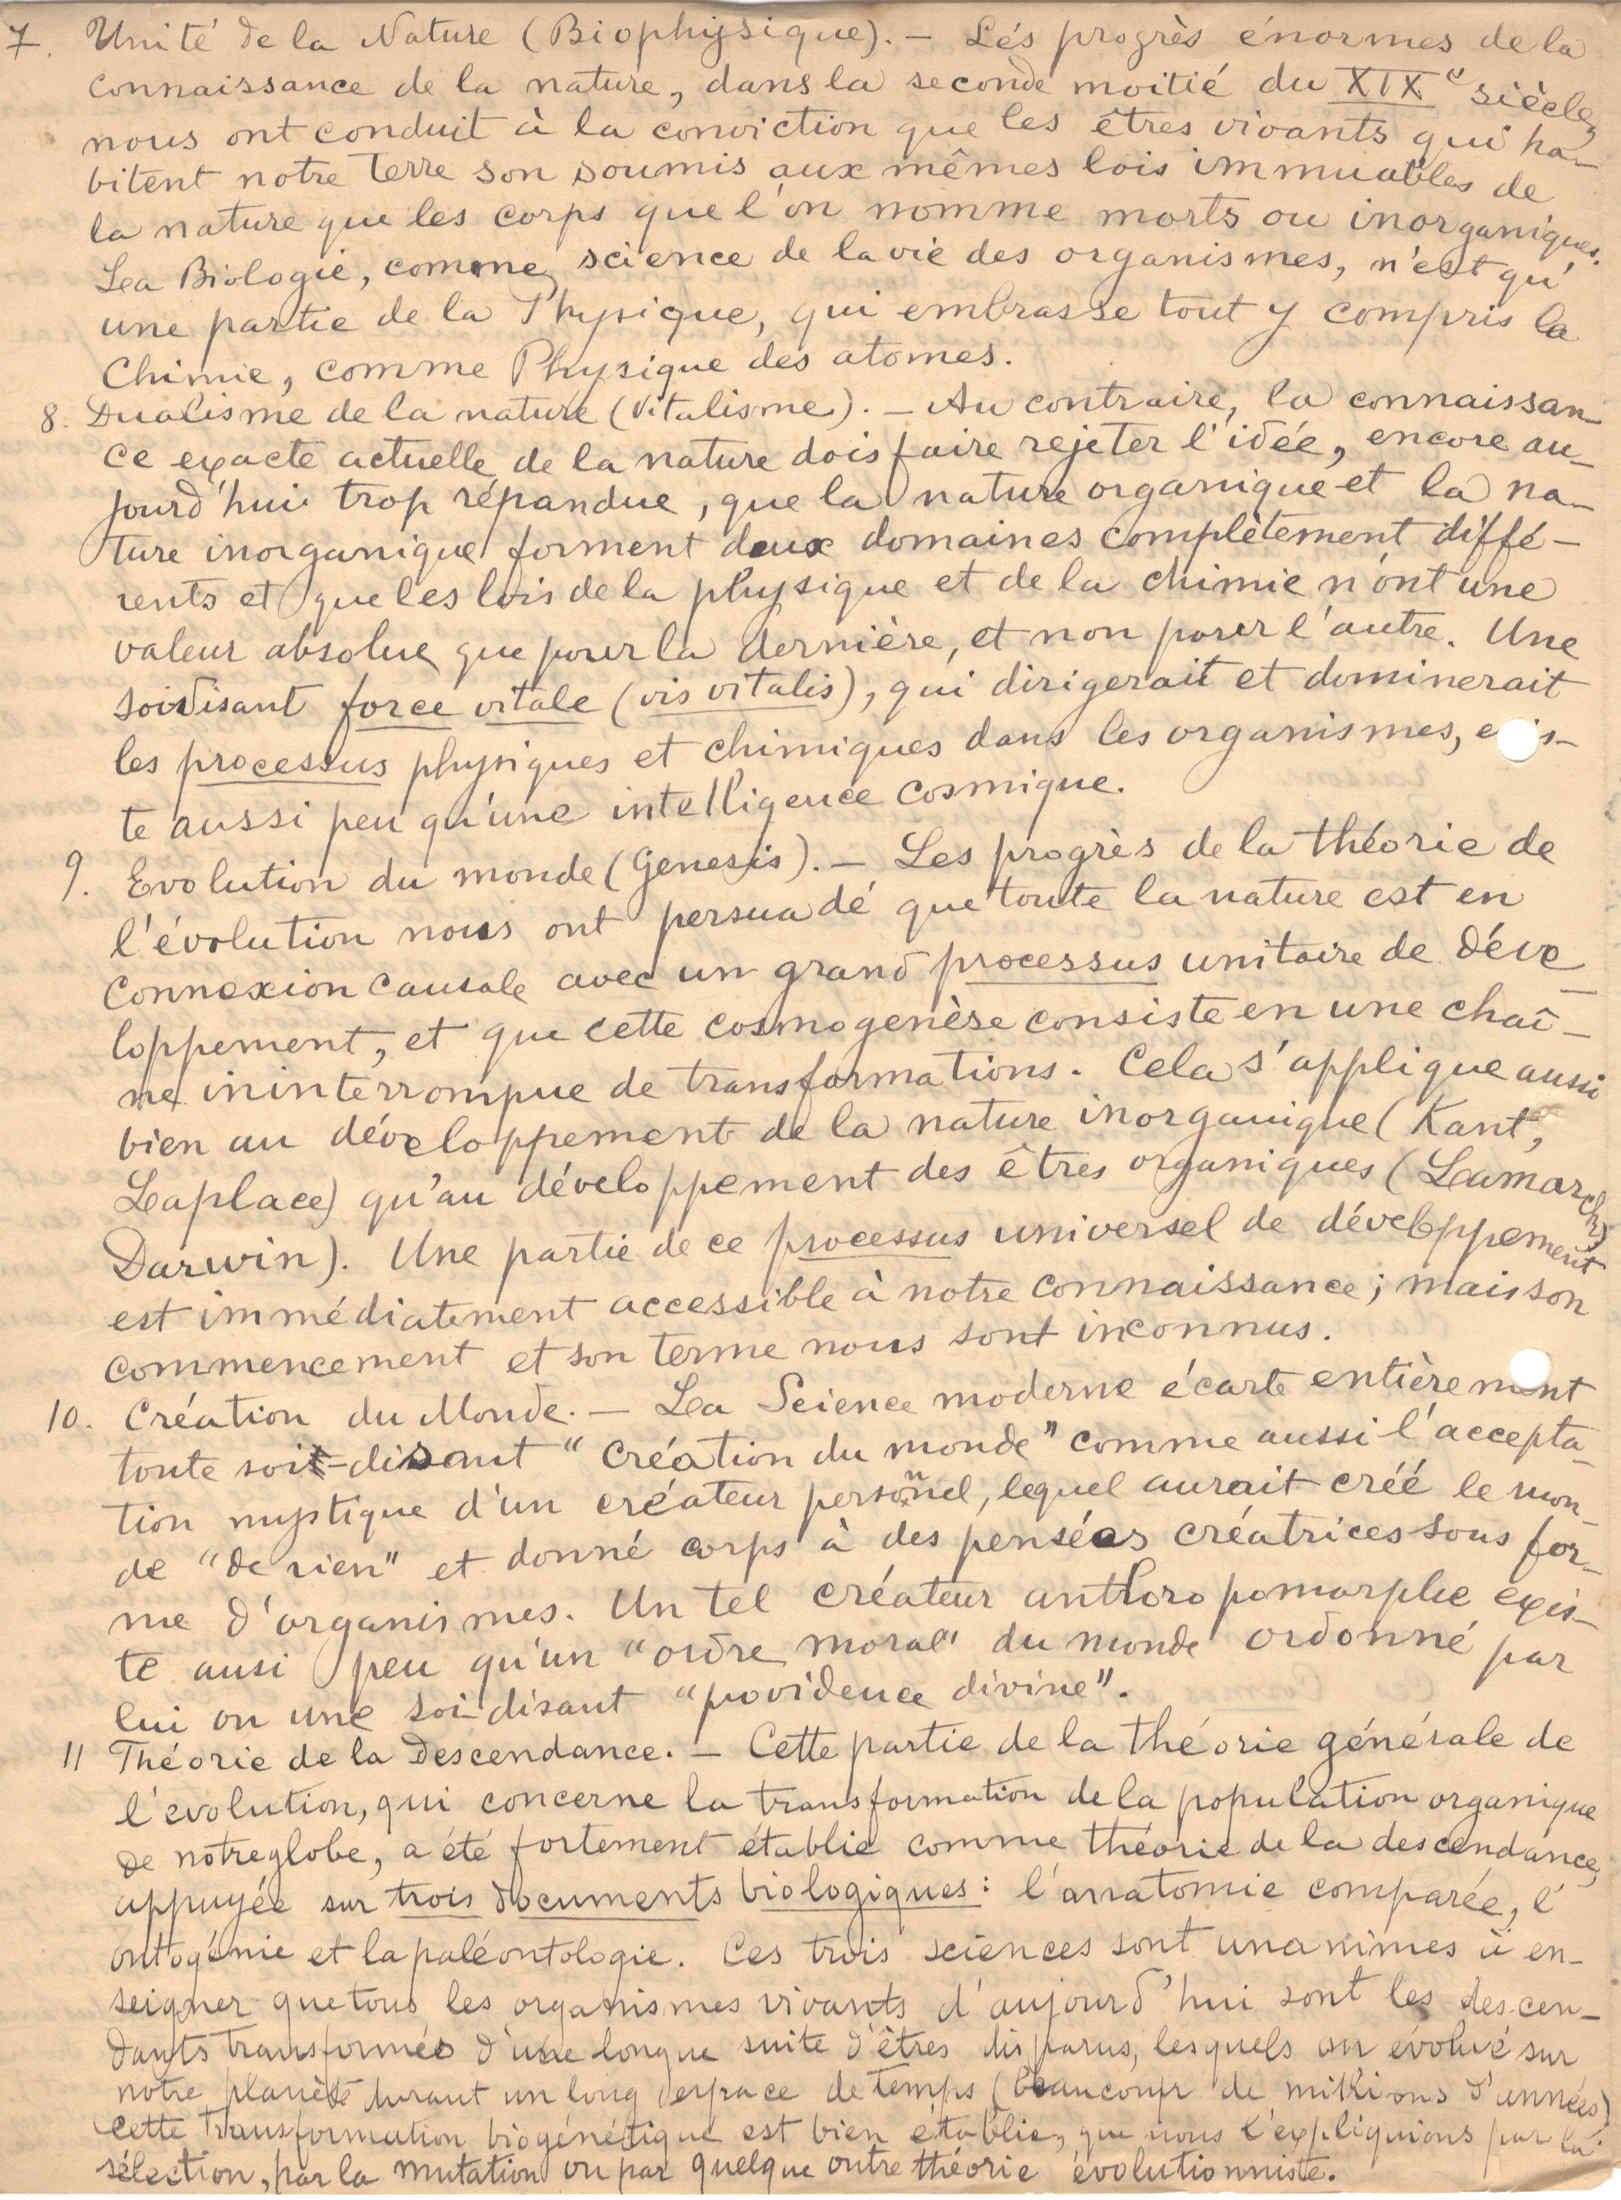 7. Unité de la Nature (Biophysique). — Lés progrès énormes de la
connaissance de la nature, dans la seconde moitié du XIXe siècle,
nous ont conduit à la conviction que les êtres vivants qui ha-
bitent notre terre son soumis aux mêmes lois immuables de
la nature que les corps que l'on nomme morts ou inorganiques.
La Biologie, comme science de la vie des organismes, n'est qu'
une partie de la Physique, qui embrasse tout y compris la
Chimie, comme Physique des atomes.
8. Dualisme de la nature (Vitalisme). — Au contraire, la connaissan-
ce exacte actuelle de la nature dois faire rejeter l'idée, encore au-
jourd'hui trop répandue, que la nature organique et la na-
ture inorganique forment deux domaines complètement diffé-
rents et que les lois de la physique et de la chimie n'ont une
valeur absolue que pour la dernière, et non pour l'autre. Une
soidisant force vitale (vis vitalis), qui dirigerait et dominerait
les processus physiques et chimiques dans les organismes, exis-
te aussi peu qu'une intelligence cosmique.
9. Evolution du monde (Genesis). — Les progrès de la théorie de
l'évolution nous ont persuadé que toute la nature est en
connexion causale avec un grand processus unitaire de déve-
loppement, et que cette cosmogenèse consiste en une chaî-
ne ininterrompue de transformations. Cela s'applique aussi
bien au développement de la nature inorganique (Kant,
Laplace) qu'au développement des êtres organiques (Lamarck,
Darwin). Une partie de ce processus universel de développement
est immédiatement accessible à notre connaissance; mais son
commencement et son terme nous sont inconnus.
10. Création du Monde. — La Science moderne écarte entièrement
toute soit-disant "Création du monde" comme aussi l'accepta-
tion mystique d'un créateur personnel, lequel aurait créé le mon-
de "de rien" et donné corps à des pensées créatrices sous for-
me d'organismes. Un tel créateur anthoropomorphe exis-
te ausi peu qu'un "ordre moral" du monde ordonné par
lui ou une soi-disant "providence divine".
11 Théorie de la Descendance. — Cette partie de la théorie générale de
l'evolution, qui concerne la transformation de la population organique
de notre globe, a été fortement établie comme théorie de la descendance,
appuyée sur trois documents biologiques: l'anatomie comparée, l'
ontogénie et la paléontologie. Ces trois sciences sont unanimes à en-
seigner que tous les organismes vivants d'aujourd'hui sont les descen-
dants transformés d'une longue suite d'êtres disparus, lesquels on évolué sur
notre planète durant un long espace de temps (beaucoup de millions d'années)
Cette transformation biogénétique est bien établie, que nous l'expliquions par la
sélection, par la mutation ou par quelque outre théorie évolutionniste.